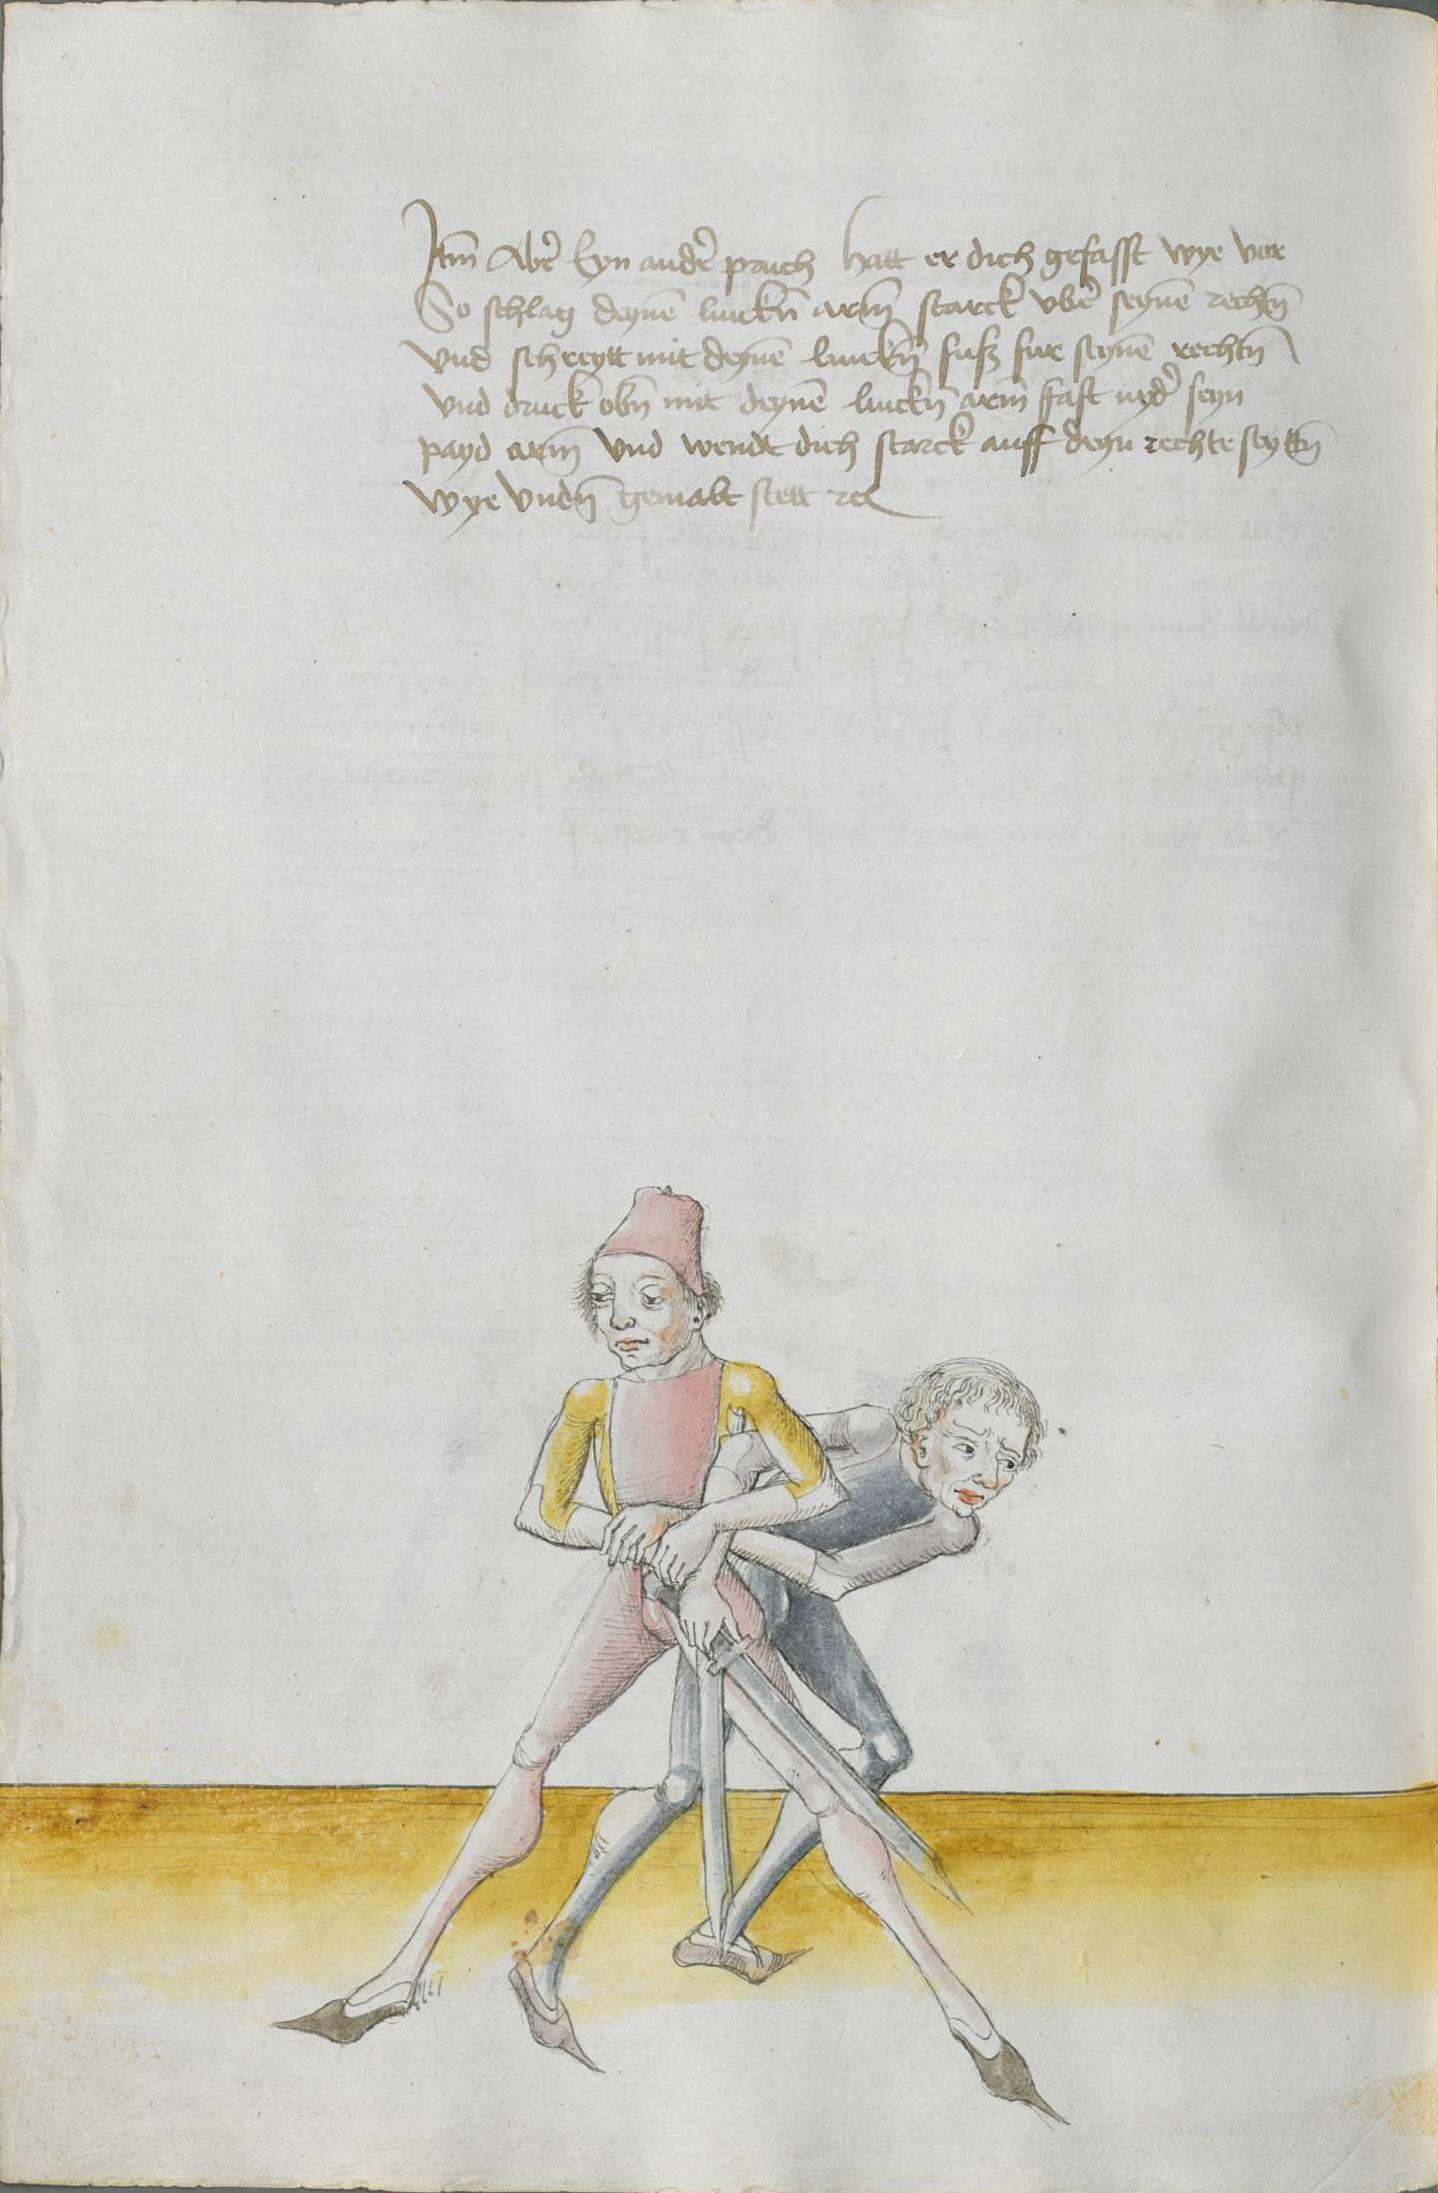 Itm̄ Aber̄ Eyn ander̄ pruch hatt er dich gefasst wye vor
So schlag deynē linckn̄ arm̄ starck vber̄ seynē rechn̄
Vnd schreytt mit deynē linckn̄ fuß fur seynē rechtn̄
Vnd druck obn̄ mit deynē linckn̄ arm̄ fast nyder̄ seyn
payd arm̄ Vnd wendt dich starck auff deyn rechte seyttn̄
wye Vndn̄ gemalt stett ꝛc